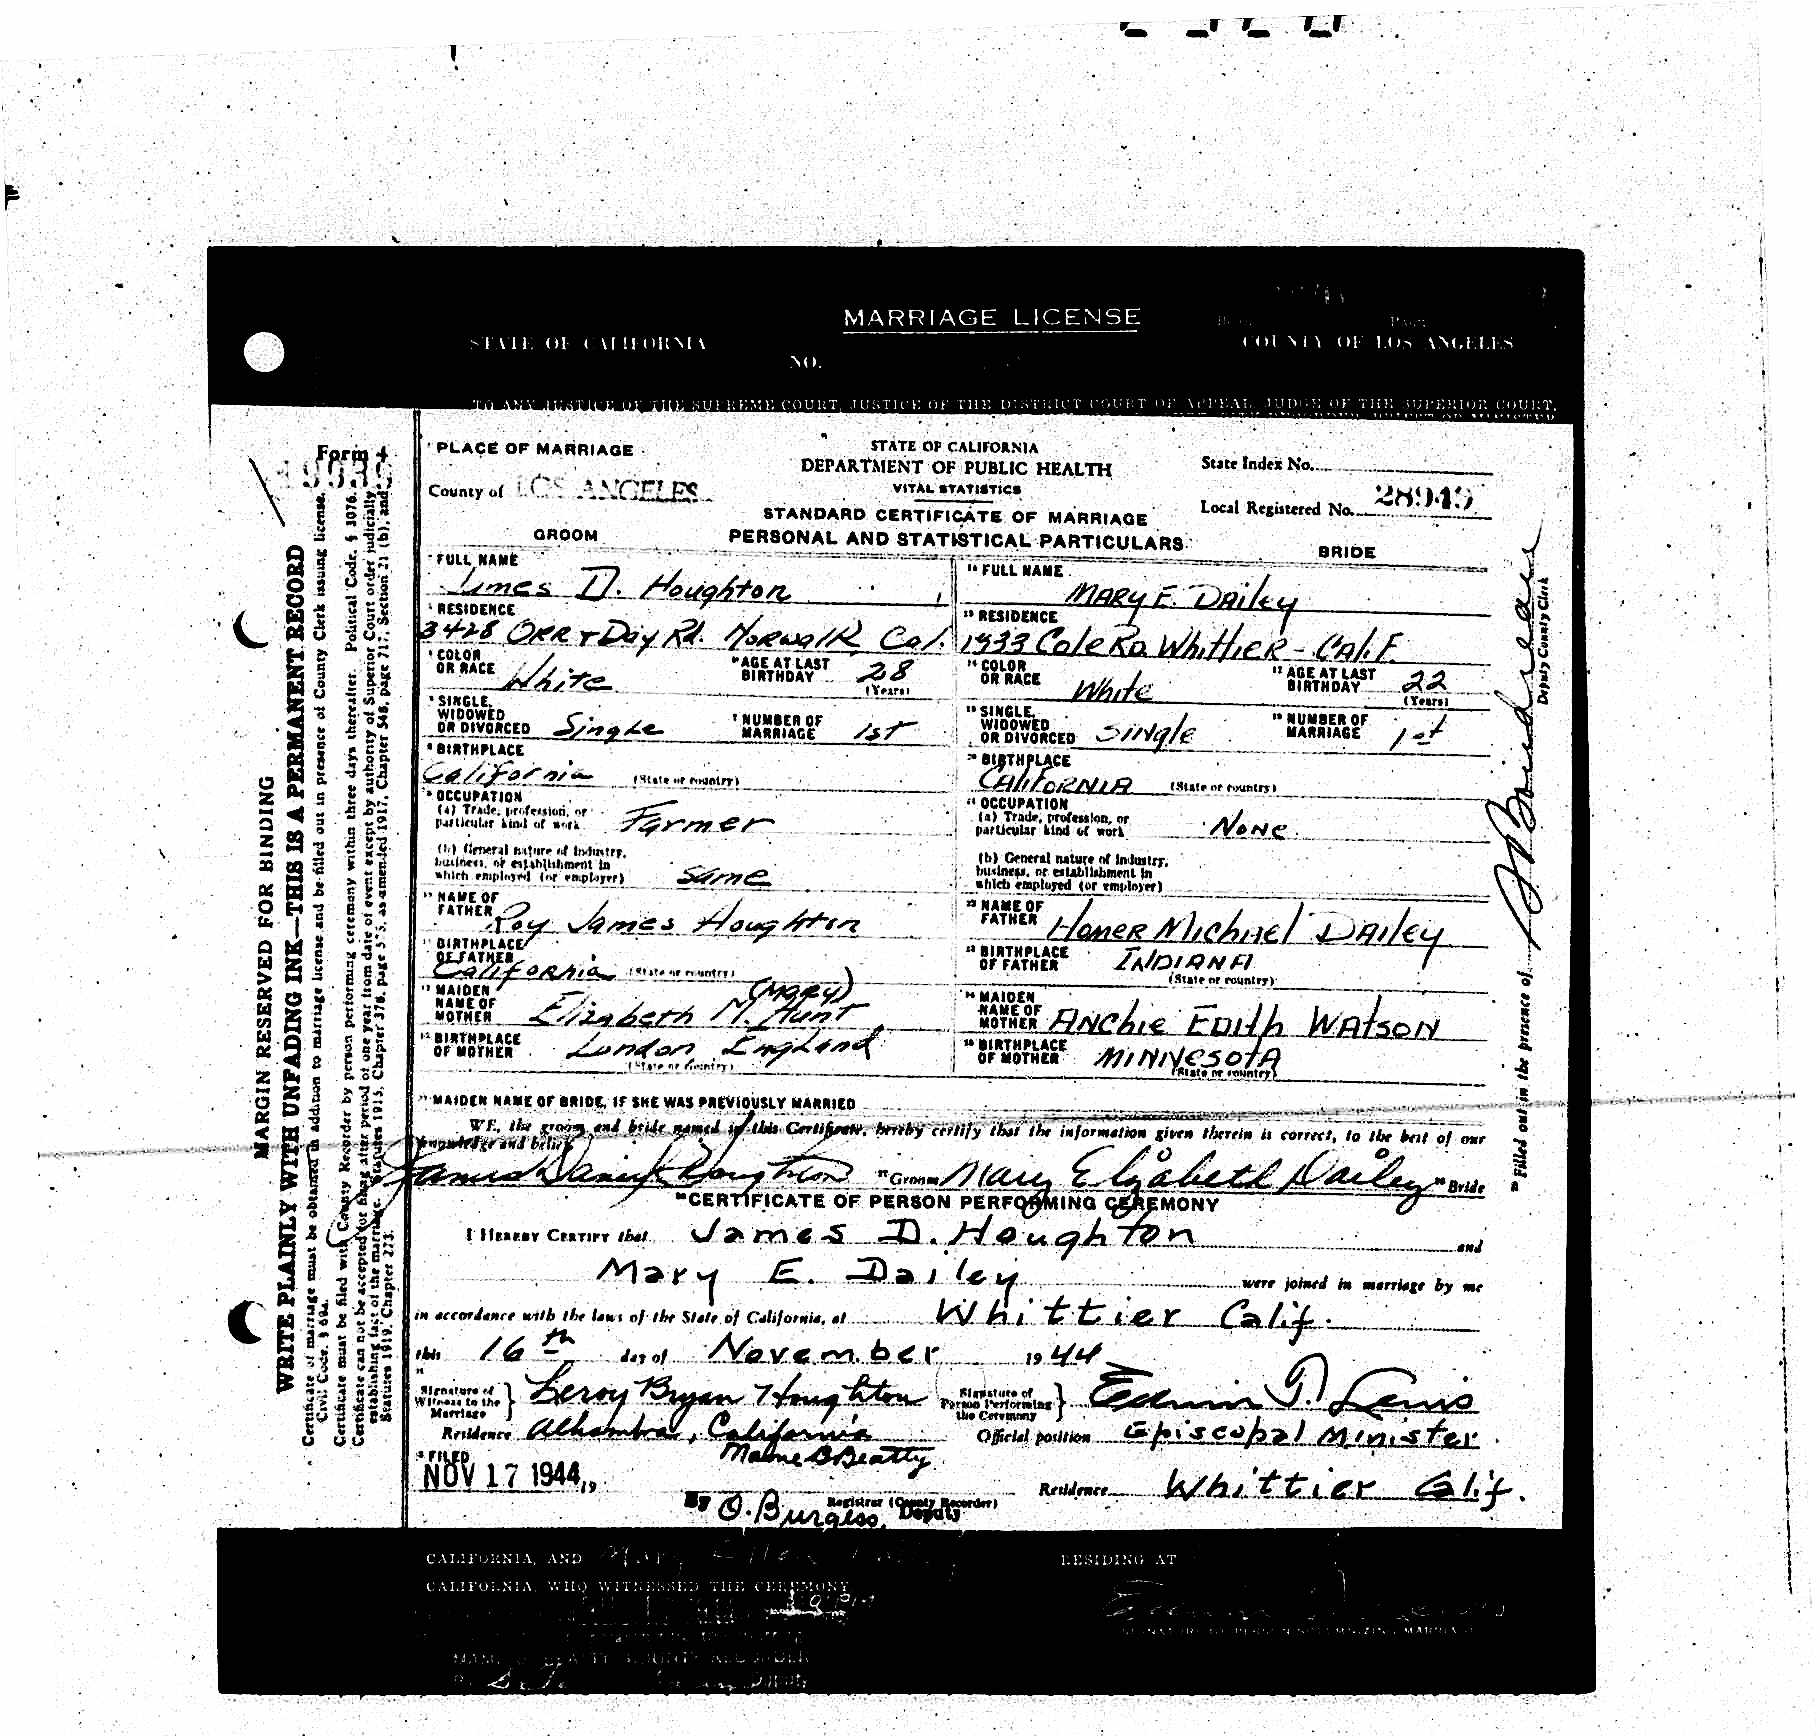 MARRIAGE LICENSE
STATE OF CALIFORNIA
COUNTY OF LOS ANGELES
NO.
TO ANY JUSTICE OF THE SUPREME COURT, JUSTICE OF THE DISTRICT COURT OF APPEAL, JUDGE OF THE SUPERIOR COURT,
Form 4
PLACE OF MARRIAGE
County of LOS ANGELES
STATE OF CALIFORNIA
DEPARTMENT OF PUBLIC HEALTH
VITAL STATISTICS
STANDARD CERTIFICATE OF MARRIAGE
PERSONAL AND STATISTICAL PARTICULARS
State Index No.
Local Registered No. 28949
GROOM
BRIDE
FULL NAME
James D. Houghton
RESIDENCE
3428 ORR & Day Rd. Norwalk Cal.
COLOR OR RACE White
AGE AT LAST BIRTHDAY 28 (Years)
SINGLE, WIDOWED OR DIVORCED Single
NUMBER OF MARRIAGE 1st
BIRTHPLACE
California (State or country)
OCCUPATION
(a) Trade, profession, or particular kind of work Farmer
(b) General nature of industry, business, or establishment in which employed (or employer) Same
NAME OF FATHER Roy James Houghton
BIRTHPLACE OF FATHER California (State or country)
MAIDEN NAME OF MOTHER Elizabeth M. (Mary) Hunt
BIRTHPLACE OF MOTHER London, England
(State or country)
FULL NAME
MARY E. DAILEY
RESIDENCE
1933 Cole Rd Whittier - Calif.
COLOR OR RACE White
AGE AT LAST BIRTHDAY 22 (Years)
SINGLE, WIDOWED OR DIVORCED Single
NUMBER OF MARRIAGE 1st
BIRTHPLACE
CALIFORNIA (State or country)
OCCUPATION
(a) Trade, profession, or particular kind of work None
(b) General nature of industry, business, or establishment in which employed (or employer)
NAME OF FATHER Homer Michael Dailey
BIRTHPLACE OF FATHER INDIANA
(State or country)
MAIDEN NAME OF MOTHER ARCHIE EDITH WATSON
BIRTHPLACE OF MOTHER MINNESOTA
(State or country)
MAIDEN NAME OF BRIDE, IF SHE WAS PREVIOUSLY MARRIED
WE, the groom and bride named in this Certificate, hereby certify that the information given therein is correct, to the best of our
knowledge and belief.
James Daniel Houghton Groom Mary Elizabeth Dailey Bride
CERTIFICATE OF PERSON PERFORMING CEREMONY
I HEREBY CERTIFY that James D. Houghton and
Mary E. Dailey were joined in marriage by me
in accordance with the laws of the State of California, at Whittier Calif.
this 16th day of November 1944
Signature of Witness to the Marriage } Leroy Bryan Houghton
Residence Alhambra, California
Signature of Person Performing the Ceremony } Edwin T. Lewis
Official position Episcopal Minister
Residence Whittier Calif.
FILED
NOV 17 1944, 19
Mame B Beatty
Registrar (County Recorder)
By O. Burgess, Deputy
MARGIN RESERVED FOR BINDING
WRITE PLAINLY WITH UNFADING INK—THIS IS A PERMANENT RECORD
Certificate of marriage must be obtained in addition to marriage license and be filled out in presence of County Clerk issuing license.
Civil Code, § 69a.
Certificate must be filed with County Recorder by person performing ceremony within three days thereafter. Political Code, § 3076.
Certificate can not be accepted for filing after period of one year from date of event except by authority of Superior Court order judicially
establishing fact of the marriage. Statutes 1915, Chapter 378, page 575, as amended 1917, Chapter 548, page 717, Section 21 (b), and
Statutes 1919, Chapter 273.
Filled out in the presence of
Deputy County Clerk
CALIFORNIA, AND
RESIDING AT
CALIFORNIA, WHO WITNESSED THE CEREMONY